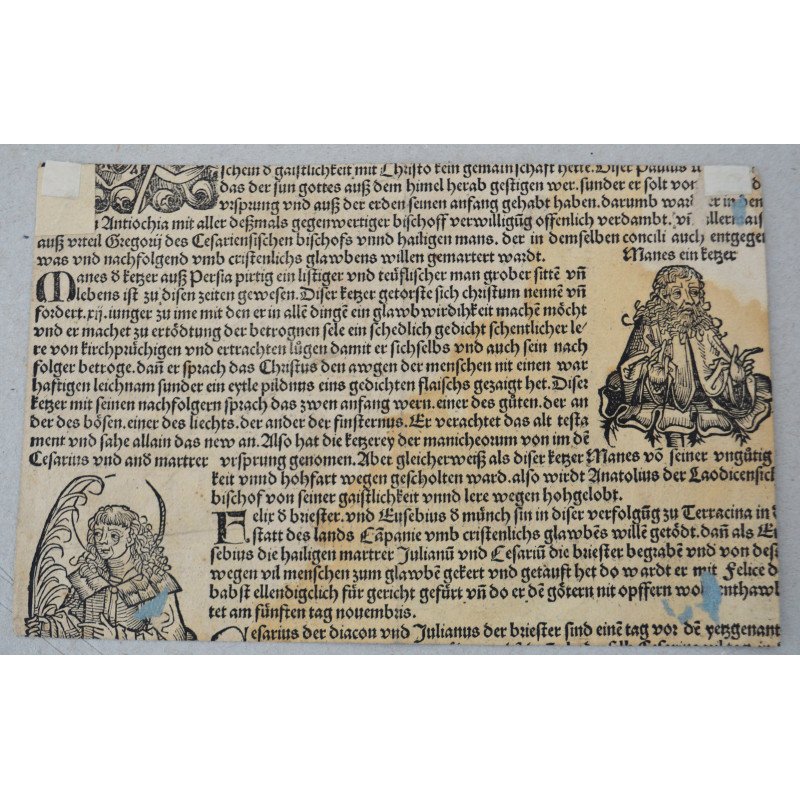 schein d̕ gaistlichkeit mit Christo kein gemainschaft hette. Diser Paulus
das der sun gottes auß dem himel herab gestigen wer. sunder er solt vor
vrsprung vnd auß der erden seinen anfang gehabt haben. darumb war er in
Antiochia mit aller deßmals gegenwertiger bischoff verwilligūg offenlich verdambt. vn̄
auß vrteil Gregorij des Cesariensischen bischofs vnnd hailigen mans. der in demselben concili auch entgege
was vnd nachfolgend vmb cristenlichs glawbens willen gemartert wardt.
Manes ein ketzer
Manes d̕ ketzer auß Persia pirtig ein listiger vnd teüflischer man grober sittē vn̄
lebens ist zu disen zeiten gewesen. Diser ketzer getorste sich christum nennē vn̄
fordert .xij. iunger zu ime mit den er in allē dingē ein glawbwirdikeit machē möcht
vnd er machet zu ertödtung der betrognen sele ein schedlich gedicht schentlicher le⸗
re von kirchprüchigen vnd ertrachten lügen damit er sichselbs vnd auch sein nach
folger betroge. dan̄ er sprach das Christus den awgen der menschen nit einen war
haftigen leichnam sunder ein eytle pildnus eins gedichten flaischs gezaigt het. Diser
ketzer mit seinen nachfolgern sprach das zwen anfang wern. einer des gūten. der an
der des bösen. einer des liechts. der ander der finsternus. Er verachtet das alt testa
ment vnd sahe allain das new an. Also hat die ketzerey der manicheorum von im dē
Cesarius vnd and̕ martrer
vrsprung genomen. Aber gleicherweiß als diser ketzer Manes vō seiner vngütig
keit vnnd hohfart wegen gescholten ward. also wirdt Anatolius der Laodicensisch
bischof von seiner gaistlichkeit vnnd lere wegen hohgelobt.
Felix d̕ briester. vnd Eusebius d̕ münch sin in diser verfolgūg zu Terracina in d
statt des lands Cāpanie vmb cristenlichs glawbēs willē getödt. dan̄ als Eu
sebius die hailigen martrer Julianū vnd Cesariū die briester begrabē vnd von des
wegen vil menschen zum glawbē gekert vnd getauft het do wardt er mit Felice d
babst ellendigclich für gericht gefürt vn̄ do er dē göttern nit opffern wol enthaw
tet am fünften tag nouembris.
Cesarius der diacon vnd Julianus der briester sind einē tag vor dē yetzgenant